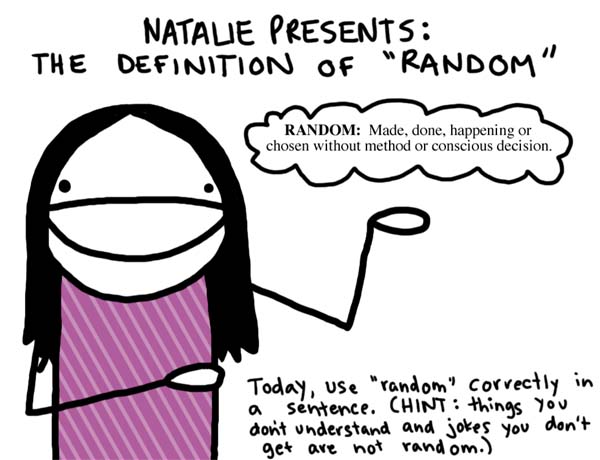 NATALIE PRESENTS:
THE DEFINITION OF "RANDOM"
RANDOM: Made, done, happening or
chosen without method or conscious decision.
Today, use "random" correctly in
a sentence. (HINT: things you
don't understand and jokes you don't
get are not random.)